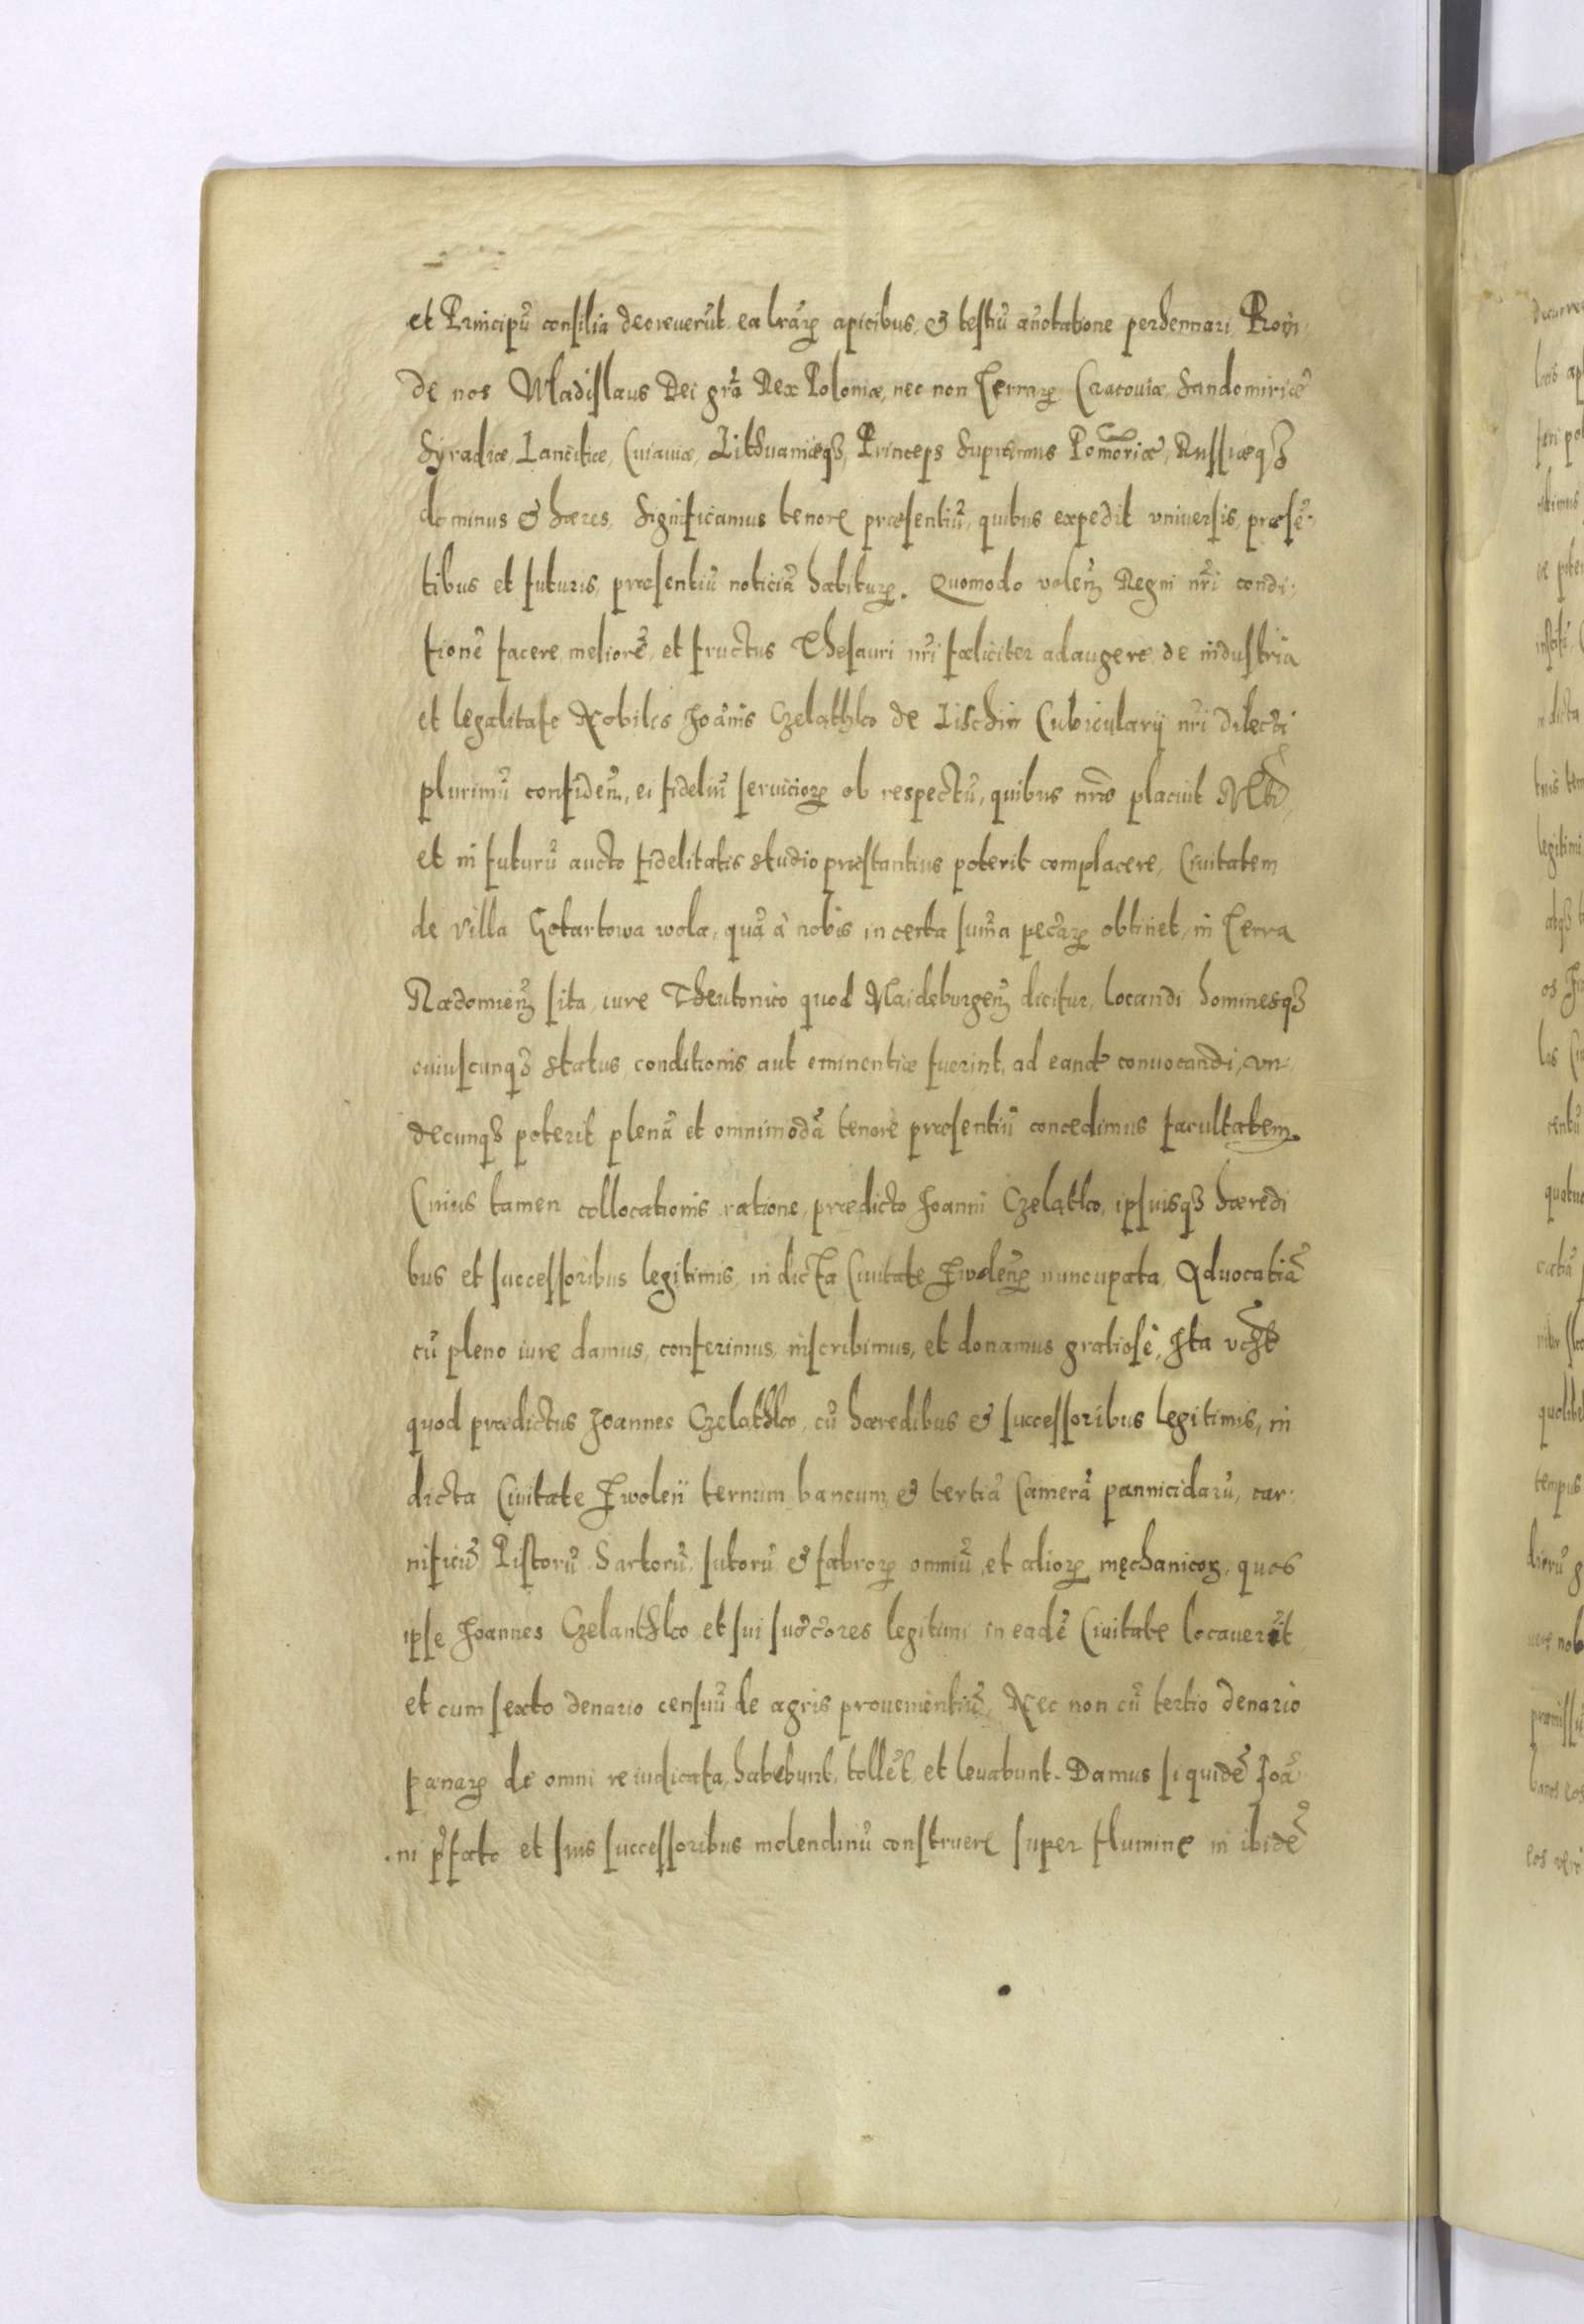 et Principũ consilia decreuerũt ea lrãrꝝ apicibus, & testiũ añotatione perhennari, Proin
de nos Wladislaus Dei grã Rex Poloniæ, nec non Terrarꝝ Cracouiæ, Sandomiriæ
Syradiæ, Lancitiæ, Cuiauiæ, Lithuaniæqꝫ, Princeps Supremus Pomoriæ, Russiæqꝫ
dominus & hæres, Significamus tenore præsentiũ, quibus expedit vniuersis, præsẽ-
tibus et futuris, præsentiũ noticiã habiturꝝ. Quomodo volen̄ Regni nr̃i condi-
tionẽ facere meliorẽ, et fructus Thesauri nr̃i fœliciter adaugere, de industria
et legalitate Nobilis Joãnis Czelathko de Lischin Cubicularij nr̃i dilecti
plurimũ confiden̄, ei fideliũ seruiciorꝝ ob respectũ, quibus nr̃æ placuit Mti,
et in futurũ aucto fidelitatis studio præstantius poterit complacere, Ciuitatem
de villa Gotartowa wola, quã à nobis in certa sum̃a pecãrꝝ obtinet, in Terra
Radomien̄ sita, iure Theutonico quod Maideburgen̄ dicitur, locandi, hominesqꝫ
cuiuscunqꝫ status, conditionis aut eminentiæ fuerint, ad eand convocandi, vn-
decunqꝫ poterit plenã et omnimodã tenore præsentiũ concedimus facultatem.
Cuius tamen collocationis ratione, prædicto Joanni Czelatko, ipsiusqꝫ hæredi
bus et successoribus legitimis, in dicta Ciuitate Jwolen̄ nuncupata, Aduocatiã
cũ pleno iure damus, conferimus, inscribimus, et donamus gratiosè, Ita vꝫt
quod prædictus Joannes Czelathko, cũ hæredibus & successoribus legitimis, in
dicta Ciuitate Jwolen̄ ternum bancum, & tertiã Camerã pannicidarũ, car-
nificũ, Pistorũ, Sartorũ, sutorũ & fabrorꝝ omniũ, et aliorꝝ męchanicorꝝ, quos
ipse Joannes Czelanthko et sui succ̃ores legitimi in eadẽ Ciuitate locauerĩt
et cum sexto denario censuũ de agris prouenientiũ, Nec non cũ tertio denario
pænarꝝ de omni re iudicata, habebunt, tollẽt, et leuabunt. Damus siquidẽ Joã-
ni p̃fato et suis successoribus molendinũ construere super flumine in ibidẽ